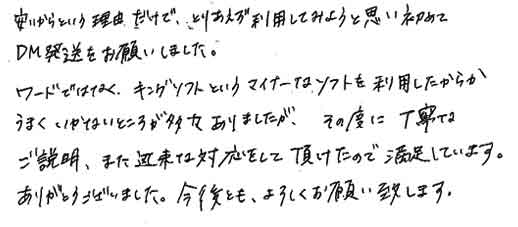 安いからという理由だけで、とりあえず利用してみようと思い初めて
DM発送をお願いしました。
ワードではなく、キングソフトというマイナーなソフトを利用したからか
うまくいかないところが多々ありましたが、その度に丁寧な
ご説明、また迅速な対応をして頂けたので満足しています。
ありがとうございました。今後とも、よろしくお願い致します。